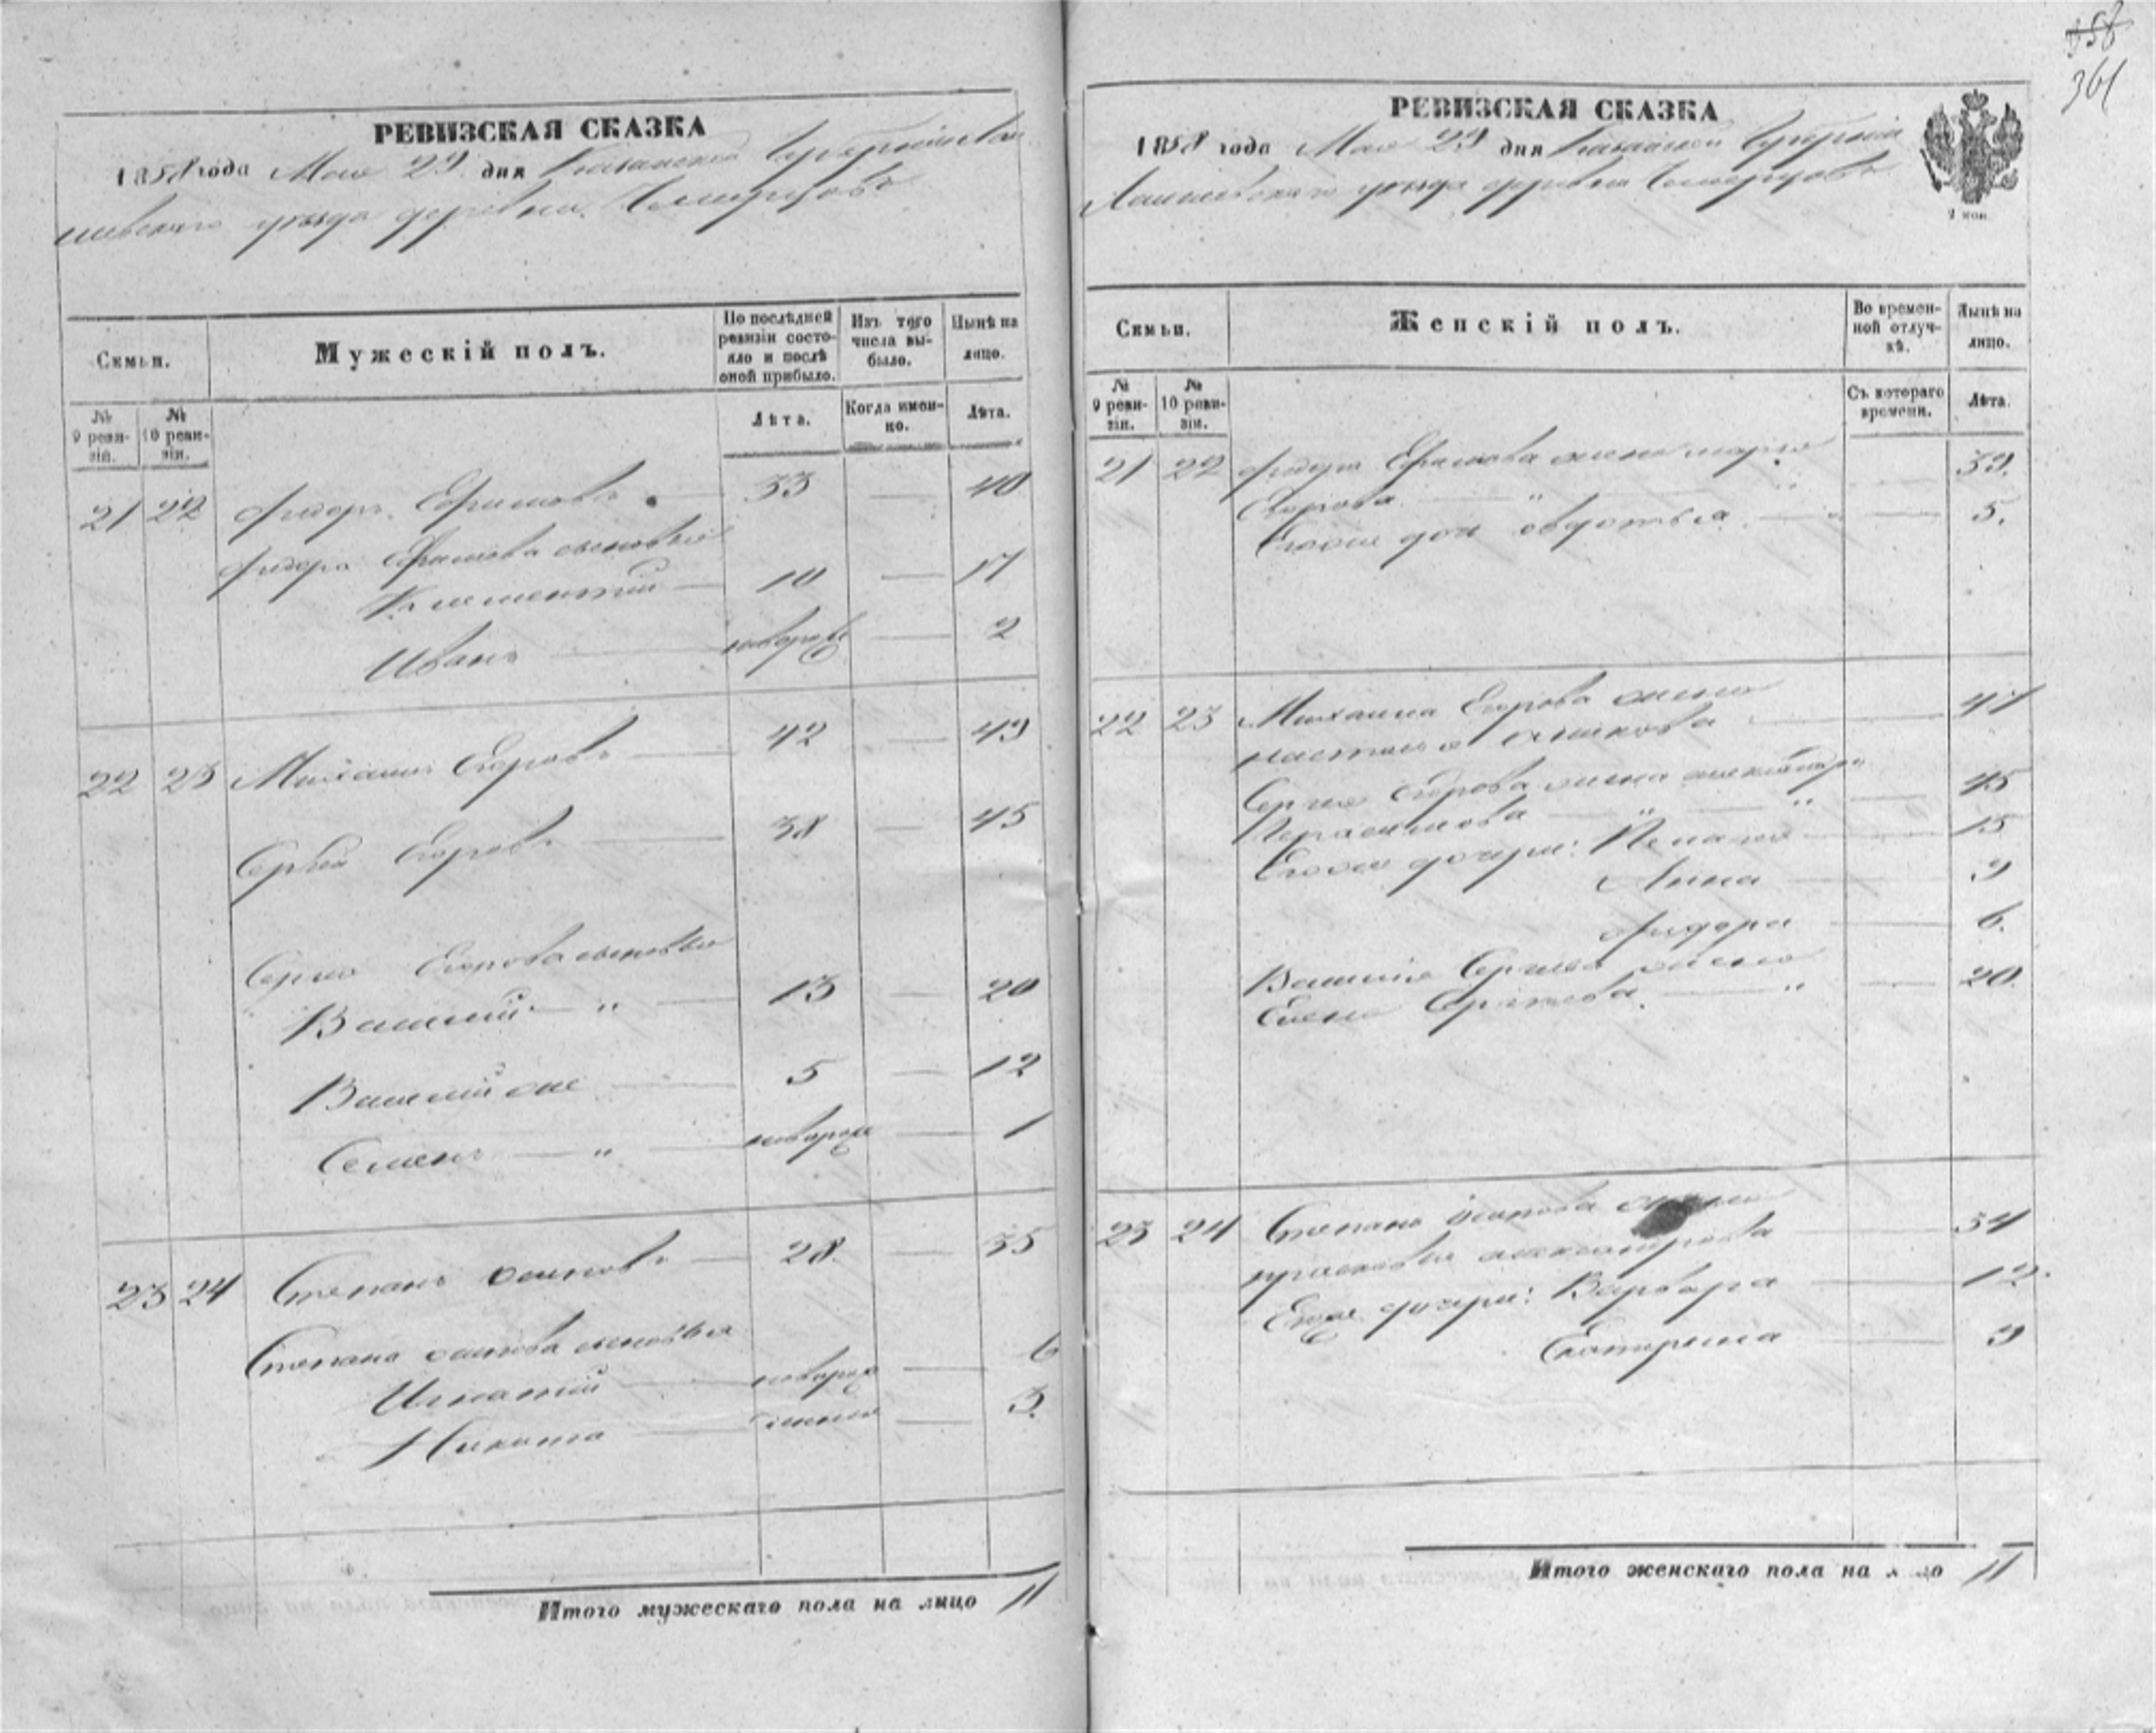 358
361
РЕВИЗСКАЯ СКАЗКА
1858 года Мая 29 дня Казанской Губернии Лаи
шевскаго уезда деревни
Семьи.
Мужескій полъ.
По послѣдней ревизіи состояло и послѣ оной прибыло.
Изъ того числа выбыло.
Нынѣ на лицо.
№ 9 ревизіи.
№ 10 ревизіи.
Лѣта.
Когда именно.
Лѣта.
21 22 Федоръ Ефимовъ 33 — 40
Федора Ефимова сыновья
Климентий — 10 — 17
Иванъ — новорож — 2
22 23 Михаилъ Егоровъ — 42 — 49
Сергей Егоровъ — 38 — 45
Сергея Егорова сыновья
Василий — " — 13 — 20
Василий оне — 5 — 12
Семенъ — " — новорож — 1
23 24 Степанъ Осиповъ — 28 — 35
Степана Осипова сыновья
Игнатий — новорож — 6
Никита — — 3.
Итого мужескаго пола на лицо 11
РЕВИЗСКАЯ СКАЗКА
1858 года Мая 29 дня Казанской Губернии
Лаишевскаго уезда деревни
2 коп.
Семьи.
Женскій полъ.
Во временной отлучкѣ.
Нынѣ на лицо.
№ 9 ревизіи.
№ 10 ревизіи.
Съ котораго времени.
Лѣта.
21 22 Федора Ефимова жена Марья
Егорова — " — 39.
Егоже доч Овдотья — 5.
22 23 Михаила Егорова жена
Настасья — 47
Сергея Егорова жена Александра
Герасимова — " — 45
Егоже дочери: Пелагея — 15
Анна — 9
Федора — 6.
Василия Сергеева жена
Елена Сергеева — " — 20.
23 24 Степана Осипова жена
Прасковья Александрова — 34
Егоже дочери: Варвара — 12.
Екатерина — 9
Итого женскаго пола на лицо 11